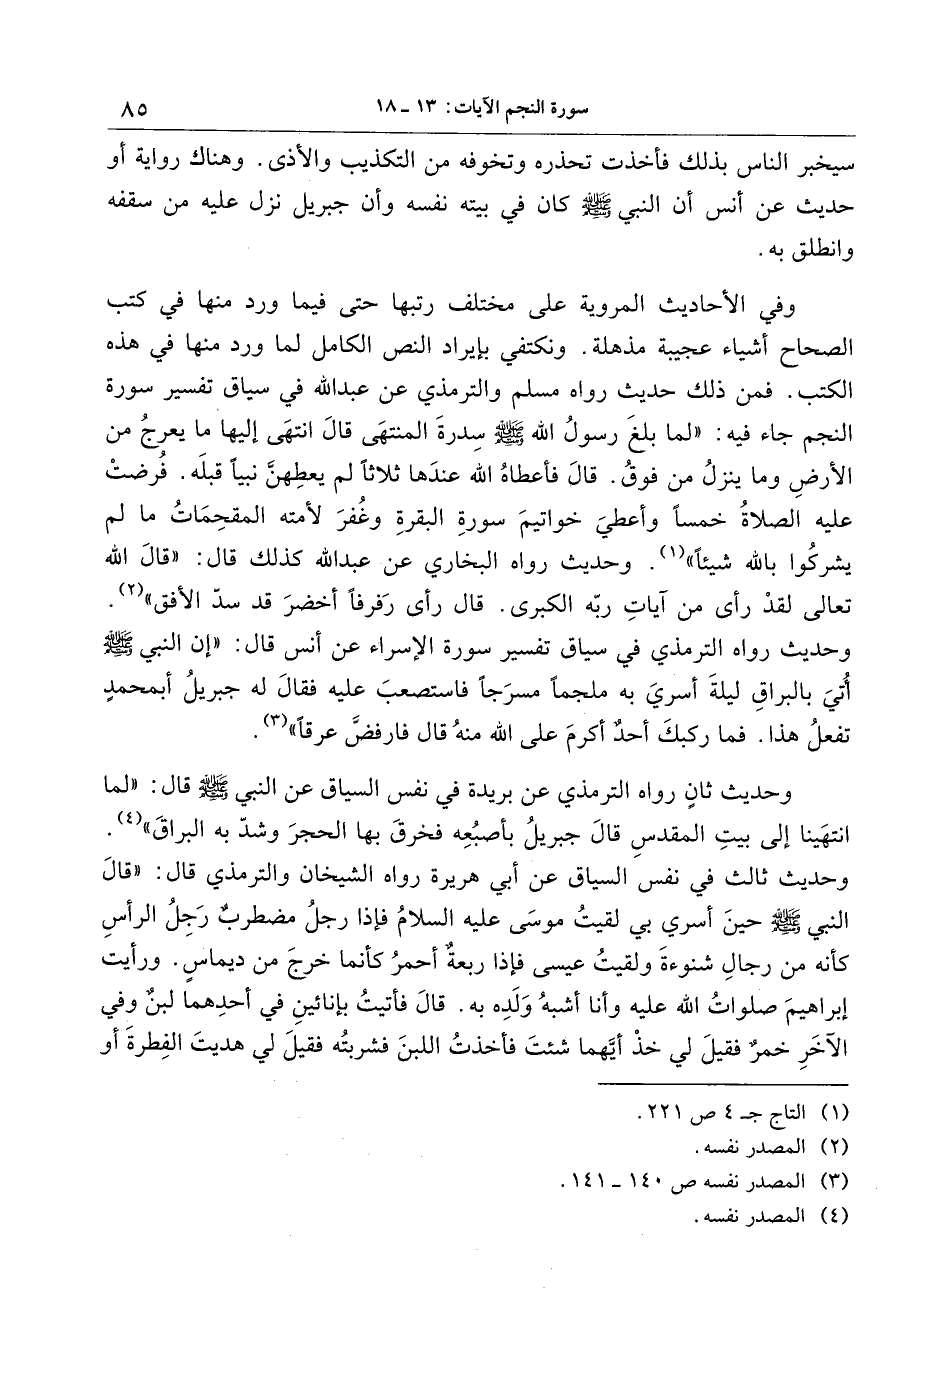 سورة النجم الآيات: ١٣ ـ ١٨ ٨٥
سيخبر الناس بذلك فأخذت تحذره وتخوفه من التكذيب والأذى. وهناك رواية أو
حديث عن أنس أن النبي ﷺ كان في بيته نفسه وأن جبريل نزل عليه من سقفه
وانطلق به.
وفي الأحاديث المروية على مختلف رتبها حتى فيما ورد منها في كتب
الصحاح أشياء عجيبة مذهلة. ونكتفي بإيراد النص الكامل لما ورد منها في هذه
الكتب. فمن ذلك حديث رواه مسلم والترمذي عن عبدالله في سياق تفسير سورة
النجم جاء فيه: «لما بلغَ رسولُ الله ﷺ سِدرةَ المنتهَى قالَ انتهَى إليها ما يعرجُ من
الأرضِ وما ينزلُ من فوقُ. قالَ فأعطاهُ الله عندَها ثلاثاً لم يعطِهنَّ نبياً قبلَه. فُرضتْ
عليه الصلاةُ خمساً وأعطيَ خواتيمَ سورةِ البقرةِ وغُفرَ لأمته المقحِمَاتُ ما لم
يشركُوا بالله شيئاً»(١). وحديث رواه البخاري عن عبدالله كذلك قال: «قالَ الله
تعالى لقدْ رأى من آياتِ ربّه الكبرى. قال رأى رَفرفاً أخضرَ قد سدّ الأفق»(٢).
وحديث رواه الترمذي في سياق تفسير سورة الإسراء عن أنس قال: «إن النبي ﷺ
أُتيَ بالبراقِ ليلةَ أسريَ به ملجماً مسرَجاً فاستصعبَ عليه فقالَ له جبريلُ أبمحمدٍ
تفعلُ هذا. فما ركبكَ أحدٌ أكرمَ على الله منهُ قال فارفضَّ عرقاً»(٣).
وحديث ثانٍ رواه الترمذي عن بريدة في نفس السياق عن النبي ﷺ قال: «لما
انتهَينا إلى بيتِ المقدسِ قالَ جبريلُ بأصبُعِه فخرقَ بها الحجرَ وشدّ به البراقَ»(٤).
وحديث ثالث في نفس السياق عن أبي هريرة رواه الشيخان والترمذي قال: «قالَ
النبي ﷺ حينَ أسري بي لقيتُ موسَى عليه السلامُ فإذا رجلُ مضطربٌ رَجِلُ الرأسِ
كأنه من رجالِ شنوءةَ ولقيتُ عيسى فإذا ربعةٌ أحمرُ كأنما خرجَ من ديماسٍ. ورأيت
إبراهيمَ صلواتُ الله عليه وأنا أشبهُ وَلَدِه به. قالَ فأتيتُ بإنائينِ في أحدِهما لبنٌ وفي
الآخَرِ خمرٌ فقيلَ لي خذْ أيَّهما شئتَ فأخذتُ اللبنَ فشربتُه فقيلَ لي هديتَ الفِطرةَ أو
(١) التاج جـ ٤ ص ٢٢١.
(٢) المصدر نفسه.
(٣) المصدر نفسه ص ١٤٠ ـ ١٤١.
(٤) المصدر نفسه.